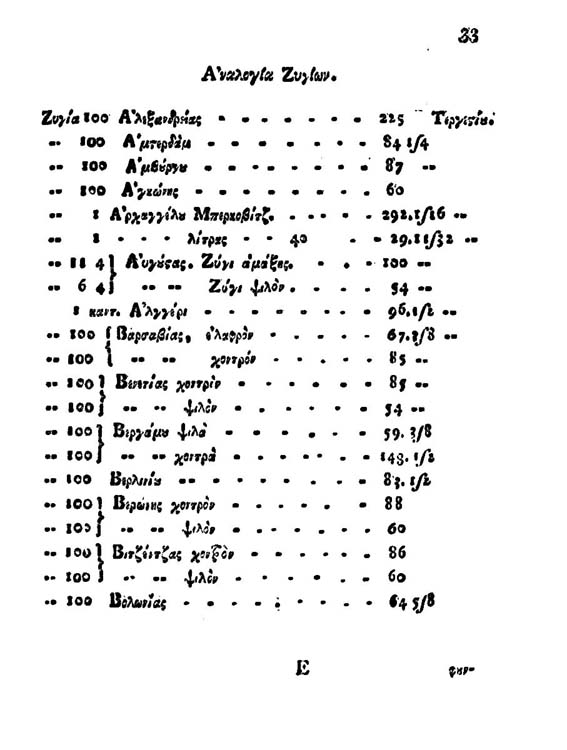 33
Ἀναλογία Ζυγίων.
Ζυγία 100 Ἀλεξανδρείας - - - - - - - 225 -- Τεργεσίου.
-- 100 Ἀμστερδὰμ - - - - - - - 84 1/4
-- 100 Ἀμβύργυ - - - - - - - 87 --
-- 100 Ἀγκώνης - - - - - - - 60
-- 1 Ἀρχαγγέλυ Μπερκοβίτζ. - - - - 292.1/16 --
-- 1 - - - λίτρας - - 40 - - 29.11/32 --
-- 11 4} Αὐγύςας. Ζύγι ἁμάξης. - - - 100 --
-- 6 4} -- -- Ζύγι ψιλόν. - - - - 54 --
1 καντ. Ἀλγγέρι - - - - - - - 96.1/2 --
-- 100 { Βαρσαβίας, ἐλαφρὸν - - - - - 67.1/8 --
-- 100 { -- -- χοντρόν - - - - - 85 --
-- 100 } Βενετίας χοντρὸν - - - - - - 85 --
-- 100 } -- -- ψιλὸν - - - - - - 54 --
-- 100 } Βεργάμυ ψιλὰ - - - - - - 59. 3/8
-- 100 } -- -- χοντρὰ - - - - - - 143. 1/2
-- 100 Βερλινίυ -- - - - - - - 83. 1/2
-- 100 } Βερώνης χοντρὸν - - - - - - 88
-- 100 } -- -- ψιλὸν - - - - - - 60
-- 100 } Βιτζέντζας χονδρὸν - - - - - - 86
-- 100 } -- -- ψιλὸν - - - - - - 60
-- 100 Βολωνίας - - - - - - - - 64 5/8
E
φυν-